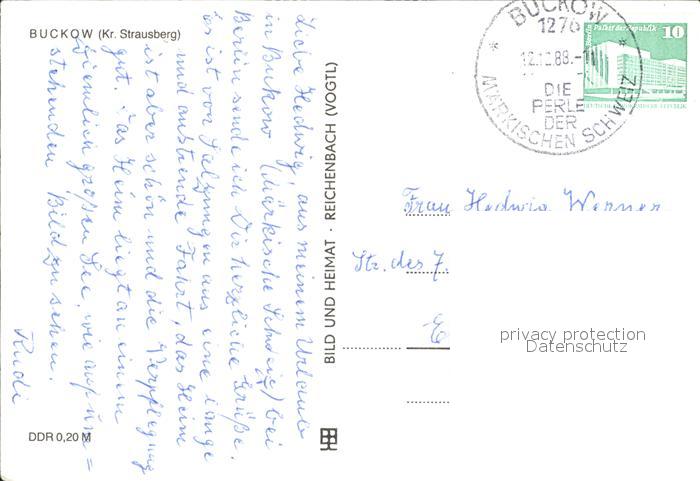 BUCKOW (Kr. Strausberg)
Liebe Hedwig! aus meinem Urlaub
in Bukow (Märkische Schweiz) bei
Berlin sende ich Dir herzliche Grüße.
es ist von Salzungen aus eine lange
und anstrende Fahrt, das Heim
ist aber schön und die Verpflegung
gut. Das Heim liegt an einem
ziemlich großen See, wie auf um=
stehenden Bild zu sehen.
Rudi
DDR 0,20 M
BILD UND HEIMAT · REICHENBACH (VOGTL)
BUCKOW
1276
DIE
PERLE
DER
MÄRKISCHEN SCHWEIZ
Palast der Republik
10
DEUTSCHE DEMOKRATISCHE REPUBLIK
Frau Hedwig Werner
Str. des 7.
E
privacy protection
Datenschutz